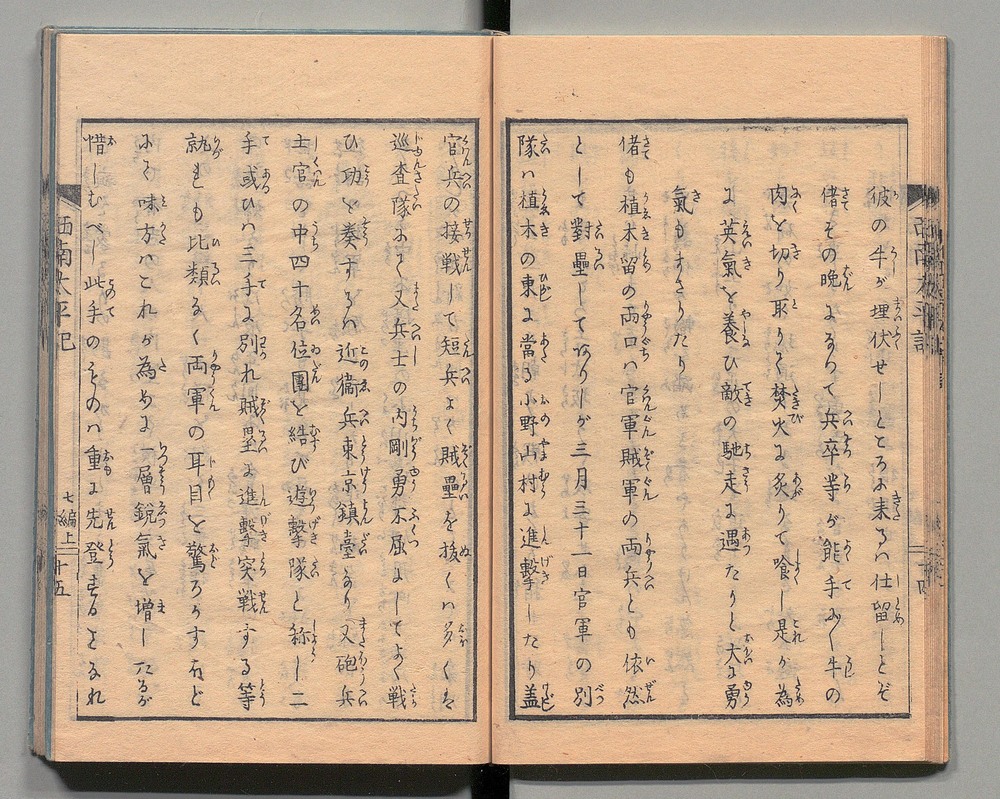 彼の牛が埋伏せしところに来るハ仕留しとぞ
偖その晩になりて兵卒等が能手ふく牛の
肉を切り取りて焚火に炙りて喰し是が為
に英氣を養ひ敵の馳走に遇たりと大に勇
氣もまさりたり
偖も植木留の両口ハ官軍賊軍の両兵とも依然
として對壘してありしが三月三十一日官軍の別
隊ハ植木の東に當る小野山村に進撃したり蓋
官兵の接戦して短兵よく賊壘を抜くハ多くは
巡査隊にて又兵士の内剛勇不屈にしてよく戦
ひ功を奏するハ近衛兵東京鎮臺なり又砲兵
士官の中四十名位團を結び遊撃隊と称し二
手或ひハ三手に別れ賊壘に進撃突戦する等
就れも比類なく両軍の耳目を驚ろかす右ど
にて味方ハこれが為めに一層鋭氣を増したるが
惜しむべし此手のものハ重に先登するよるれ
西南太平記
七編上
十五
西南太平記
十四